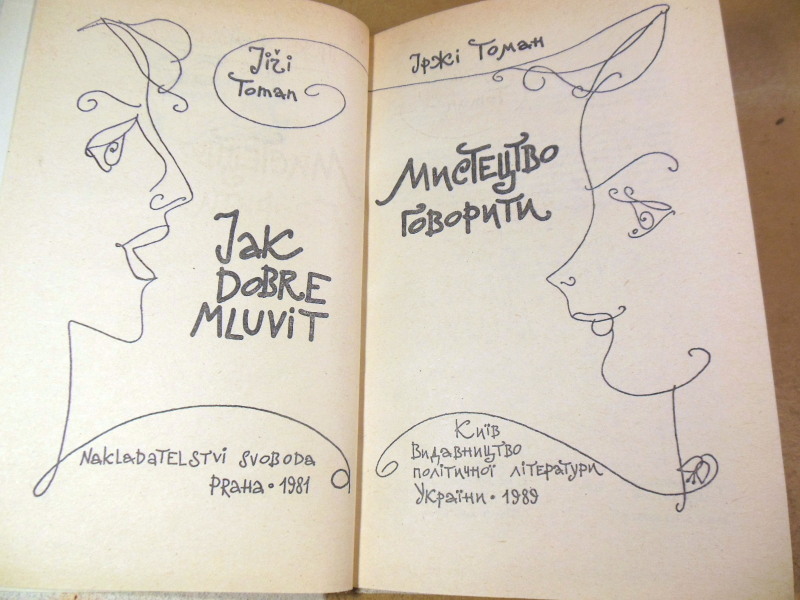 Jiři
Toman
Jak
DOBRE
MLUViT
NAKLADATELSTVí SVOBODA
PRAHA • 1981
Іржі Томан
Мистецтво
говорити
Київ
Видавництво
політичної літератури
України • 1989